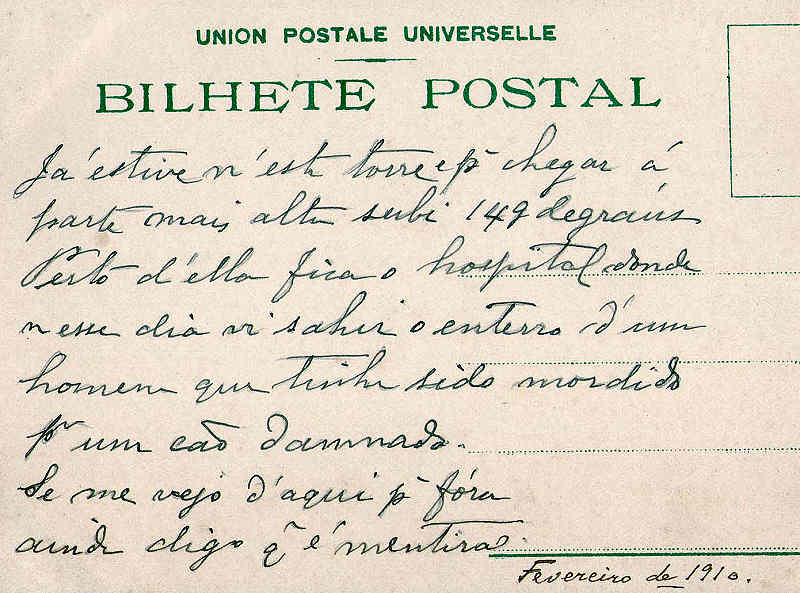 UNION POSTALE UNIVERSELLE
BILHETE POSTAL
Já estive n'esta torre e pª chegar á
parte mais alta subi 149 degraus
Perto d'ella fica o hospital donde
n esse dia vi sahir o enterro d'um
homem que tinha sido mordido
pr um cão damnado.
Se me vejo d'aqui pª fóra
ainda digo q̃ é mentira.
Fevereiro de 1910.